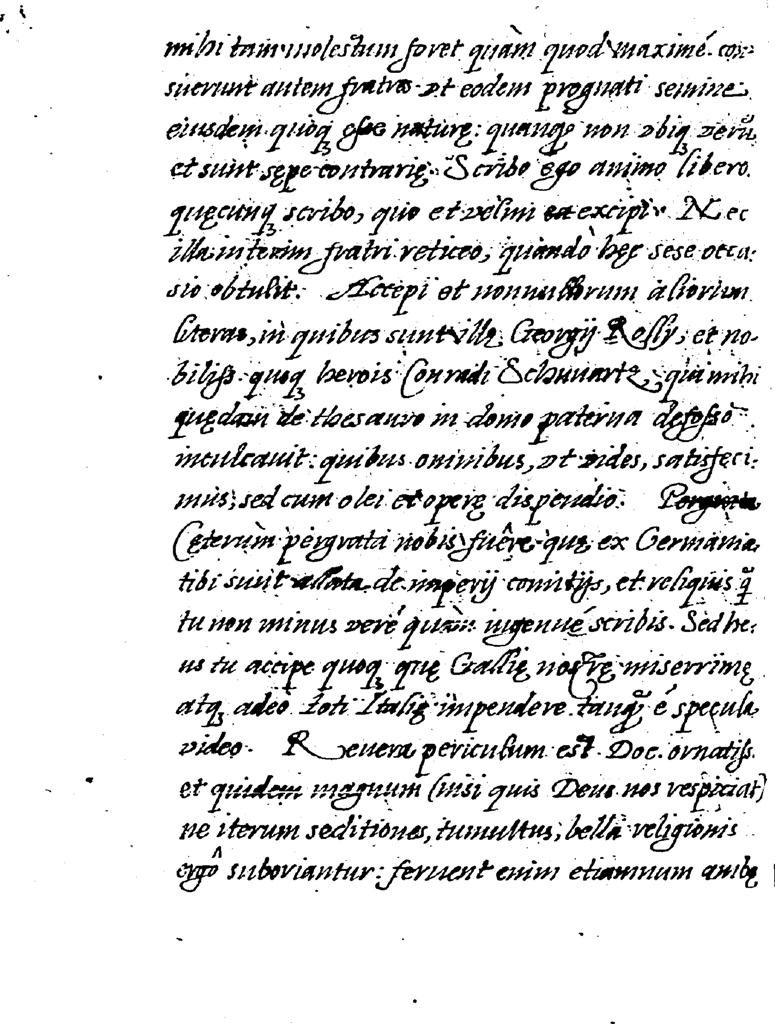 mihi tam molestum foret quàm quod maximè. con-
sueuerunt autem fratres vt eodem prognati semine
eiusdem quoq; esse naturę: quanq̃ non vbiq; verũ
et sunt sępe contrarię. Scribo ego animo libero.
quęcunq; scribo, quo et velim ea excipi. Nec
illa interim fratri reticeo, quandò hęc sese occa-
sio obtulit. Accepi et nonnullorum aliorum
literas, in quibus sunt illę Georgij Rolly, et no-
biliss. quoq; herois Conradi Schuuartz, qui mihi
quędam de thesauro in domo paterna defosso
inculcauit: quibus omnibus, vt vides, satisfeci-
mus, sed cum olei et operę dispendio.
Cęterùm pergrata nobis fuêre quę ex Germania
tibi sunt allata de imperij comitijs, et reliquis q̃
tu non minus verè quàm ingenuè scribis. Sed he-
us tu accipe quoq; quę Gallię nostrę miserrimę
atq; adeò toti Italię impendere tanq̃ è specula
video. Reuera periculum est Doc. ornatiss.
et quidem magnum (nisi quis Deus nos respiciat)
ne iterum seditiones, tumultus, bella religionis
ergô suboriantur: feruent enim etiamnum ambę